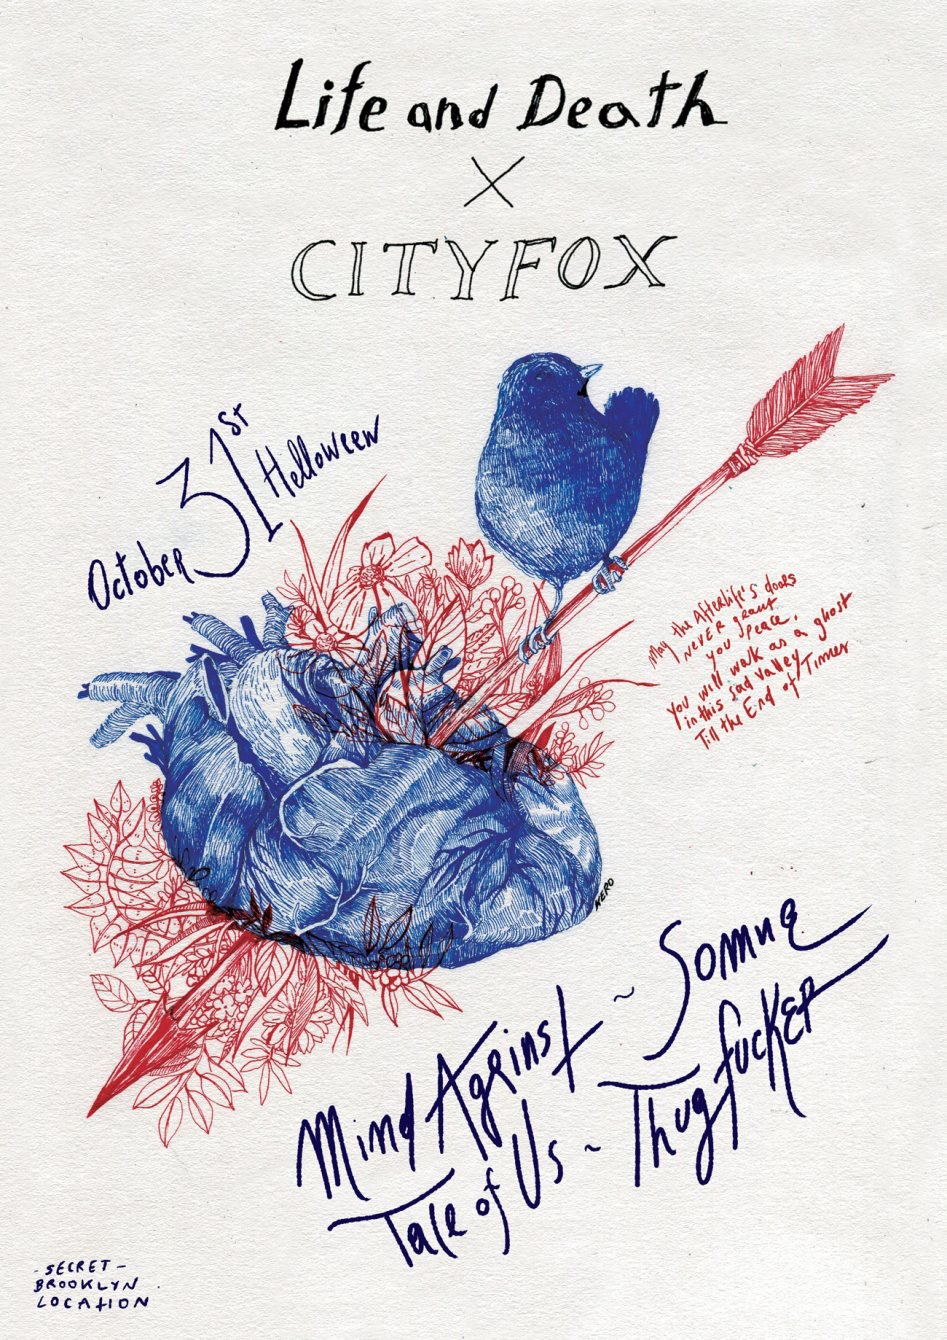 Life and Death
X
CITYFOX
October 31st Helloween
May the Afterlife's doors
NEVER grant
you peace.
You will walk as a ghost
in this sad valley
Till the End of Times
NERO
Mind Against ~ Somne
Tale of Us ~ Thugfucker
- SECRET -
BROOKLYN
LOCATION